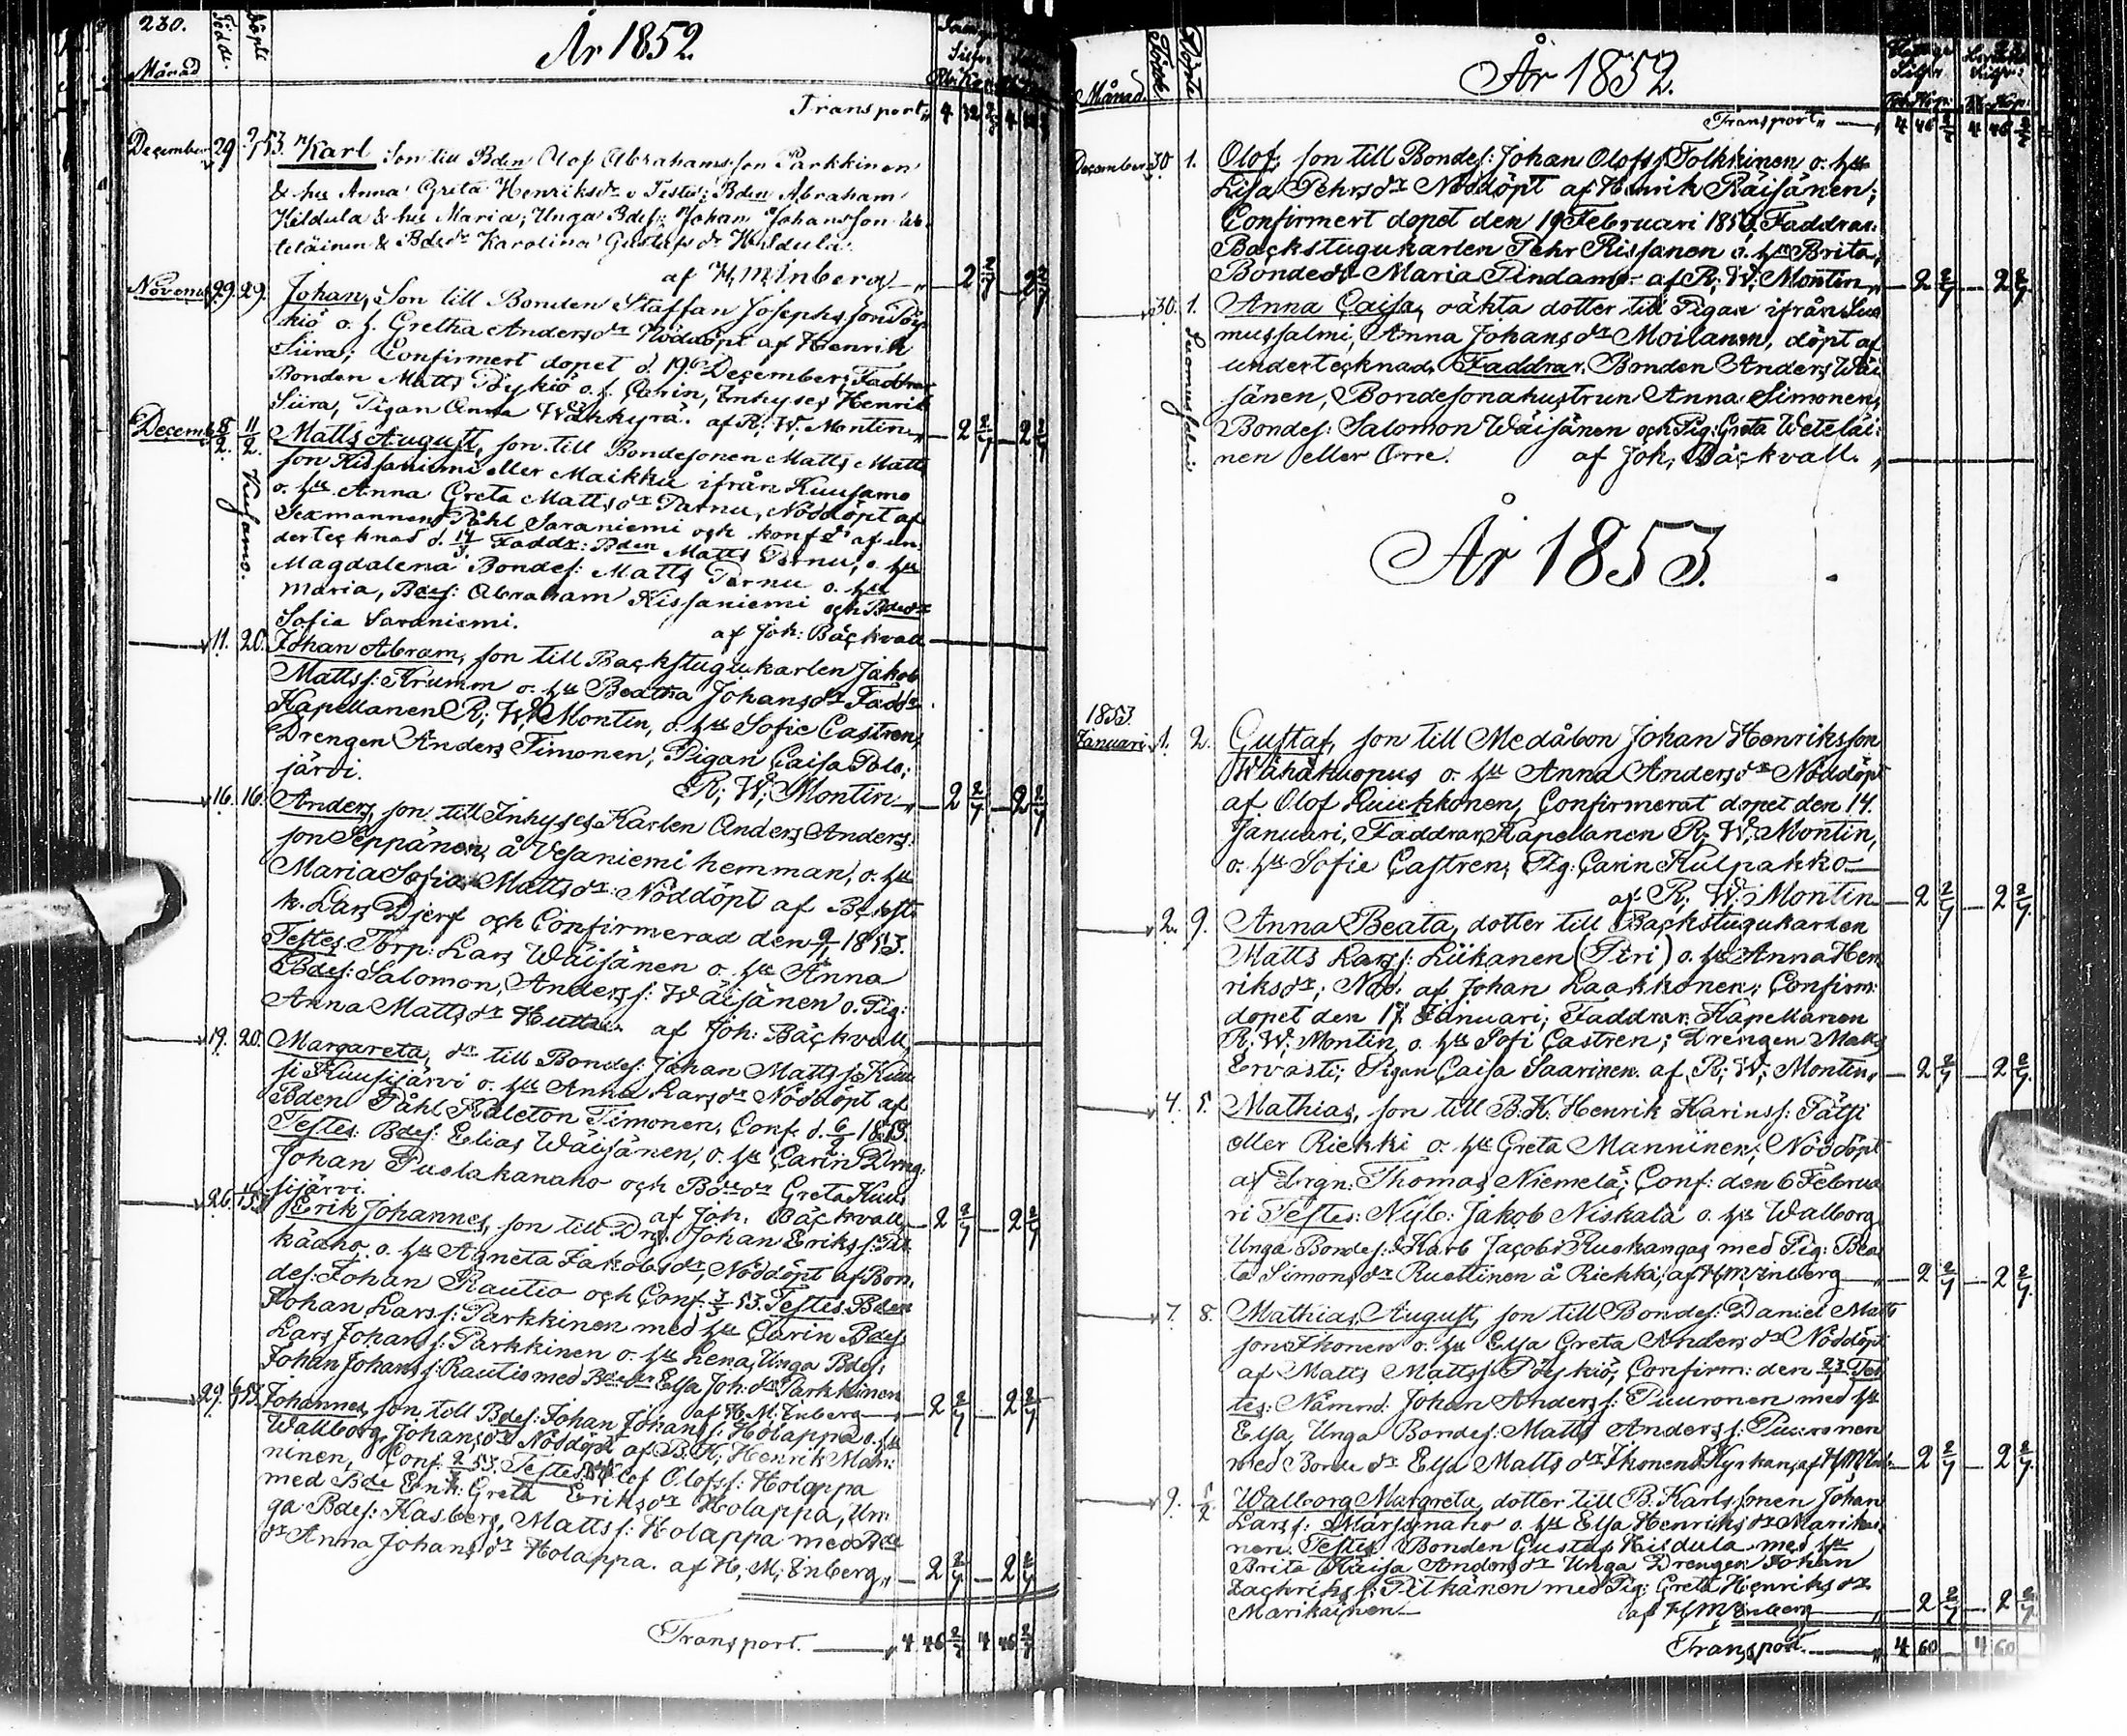 230.
År 1852
Månad
Födde.
Döpte
Transport „ 4 32 4
December 29 Karl Son till Bden Olof Abrahamsson Parkkinen
& hu Anna Greta Henriksdr Testes: Bden Abraham
Kildula & hu Maria; Unga Bdes: Johan Johansson
teläinen & Bdedr Karolina Gustafsdr Kildula.
af H, M, Enberg „ — 2 2/7 — 2 2/7
Novemb 29. 29. Johan, Son till Bonden Staffan Josephsson Pöy
kiö o. h. Gretha Andersdr Nöddöpt af Henrik
Siira; Confirmert dopet d. 19 December; Faddrar
Bonden Matts Pöykiö o. h. Carin, Inhyses Henrik
Siira, Pigan Anna Wähkyrä. af R; W; Montin „ — 2 2/7 — 2 2/7
Decemb 8/2. 11/2. Matts August, son till Bondesonen Matts Matts
Kuusamo.
son Kissaniemi eller Maikku ifrån Kuusamo
o. hu Anna Greta Mattsdr Parnu, Nöddöpt af
Sexmannen Påhl Saraniemi och konf d: af un-
dertecknad d. Faddr: Bden Matts Pernu, o. hu
Magdalena Bondes: Matts Pernu o. hu
Maria, Bdes: Abraham Kissaniemi och Bdedr
Sofia Saraniemi. af Joh: Bäckvall
11. 20. Johan Abram, son till Backstugukarlen Jakob
Mattss: Krumm o. hu Beatha Johansdr Faddr
Kapellanen R; W; Montin, o. hu Sofie Castren;
Drengen Anders Timonen; Pigan Caisa Polo;
järvi. R; W; Montin „ — 2 2/7 — 2 2/7
16. 16. Anders, son till Inhyses Karlen Anders Anders:
son Seppänen, å Vesaniemi hemman, o. hu
Maria Sofia Mattsdr: Nöddöpt af Bckst
k. Lars Djerf och Confirmerad den 9/1 1853.
Testes Torp: Lars Wäisänen o. hu Anna
Bdes: Salomon, Anderss: Wäisänen o. Pig:
Anna Mattsdr Huttu. af Joh: Bäckvall
19. 20. Margareta, dr till Bondes: Johan Mattss: Kuu
si Kuusijärvi o. hu Anna Larsdr Nöddöpt af
Bden Påhl Kaleton Timonen, Conf. d. 6/2 1853.
Testes: Bdes: Elias Wäisänen, o. hu Carin Dreng.
Johan Puolakanaho och Bdedr Greta Kuu
sijärvi. af Joh. Bäckvall — 2 2/7 — 2 2/7
26. Erik Johannes, son till Drg. Johan Erikss: Pit
kääho o. hu Agneta Jakobsdr, Nöddöpt af Bon,
des: Johan Rautio och Conf: 53. Testes Bden
Johan Larss: Parkkinen med hu Carin Bdes
Lars Johanss: Parkkinen o. hu Lena, Unga Bdes:
Johan Johanss: Rautio med Bdedr Elsa Joh: dr Parkkinen
af H. M. Enberg — 2 2/7 — 2 2/7
29. Johannes, son till Bdes: Johan Johanss: Holappa o. hu
Walborg Johansdr Nöddöpt af B. K; Henrik Man:
ninen, Conf. 53. Testes Olof Olofss: Holappa
med Bde Enk: Greta Eriksdr Holappa, Un
ga Bdes: Kasberg, Mattss: Holappa med Bde
dr Anna Johansdr Holappa. af H, M; Enberg „ — 2 2/7 — 2 2/7
Transport. — „ 4 46 2/7 4 46 2/7
År 1852.
Månad.
Födde
Döpte
Transport „ — 4 46 2/7 4 46 2/7
December 30 1. Olof, son till Bondes: Johan Olofss Tolkkinen o. hu
Lisa Pehrsdr Nöddöpt af Henrik Räisänen;
Confirmert dopet den 19 Februari 1853. Faddrar:
Backstugukarlen Pehr Rissanen o. hu Brita;
Bondedr Maria Pindamo af R; W; Montin „ — 2 2/7 — 2 2/7
30. 1. Anna Caisa, oäkta dotter till Pigan ifrån Suo
Suomussalmi
mussalmi, Anna Johansdr Moilanen, döpt af
undertecknad, Faddrar, Bonden Anders Wäi
sänen, Bondesonahustrun Anna Simonen,
Bondes: Salomon Wäisänen och Pig: Greta Weteläi:
nen eller Orre. af Joh; Bäckvall. „
År 1853.
1853.
Januari 1. 2. Gustaf, son till Medåbon Johan Henriksson
Wähäkuopus o. hu Anna Andersdr Nöddöpt
af Olof Luukkonen, Confirmerat dopet den 14.
Januari, Faddrar, Kapellanen R; W; Montin,
o. hu Sofie Castren, Pig: Carin Kulpakko
af R, W; Montin — 2 2/7 — 2 2/7
2. 9. Anna Beata, dotter till Backstugukarlen
Matts Larss: Liikanen (Piri) o. hu Anna Hen
riksdr; Nöd. af Johan Laakkonen; Confirm:
dopet den 17 Januari; Faddrar, Kapellanen
R. W; Montin, o. hu Sofi Castren; Drengen Matts
Ervasti; Pigan Caisa Saarinen. af R; W; Montin „ — 2 2/7 — 2 2/7
4. 5. Mathias, son till B. K. Henrik Karinss: Pätsi
eller Riekki o. hu Greta Manninen; Nöddöpt
af Drgn: Thomas Niemelä; Conf: den 6 Februa
ri Testes: Nyb: Jakob Niskala o. hu Walborg
Unga Bondes: Karl Jacobs: Ruokangas med Pig: Bea
ta Simonsdr Ruottinen å Riekki; af H, M, Enberg „ — 2 2/7 — 2 2/7
7. 8. Mathias August, son till Bondes: Daniel Matts
son Ikonen o. hu Elsa Greta Andersdr Nöddöpt
af Matts Mattss: Pöykiö, Confirm: den Tes
tes: Nämnd. Johan Anderss: Puuronen med hu
Elsa, Unga Bondes: Matts Anderss: Puuronen
med Bonde dr Elsa Mattsdr Ikonen i Kyrkan, af H, M, Enb — 2 2/7 — 2 2/7
9. Walborg Margreta, dotter till B. Karlssonen Johan
Larss: Märsynaho o. hu Elsa Henriksdr Marikai
nen. Testis Bonden Gustaf Kildula med hu
Brita Kaisa Andersdr Unga Drengen Johan
Zachrikss: Pitkänen med Pig: Greta Henriksdr
Marikainen — af H, M, Enberg „ — 2 2/7 — 2 2/7
Transport. — „ 4 60 4 60